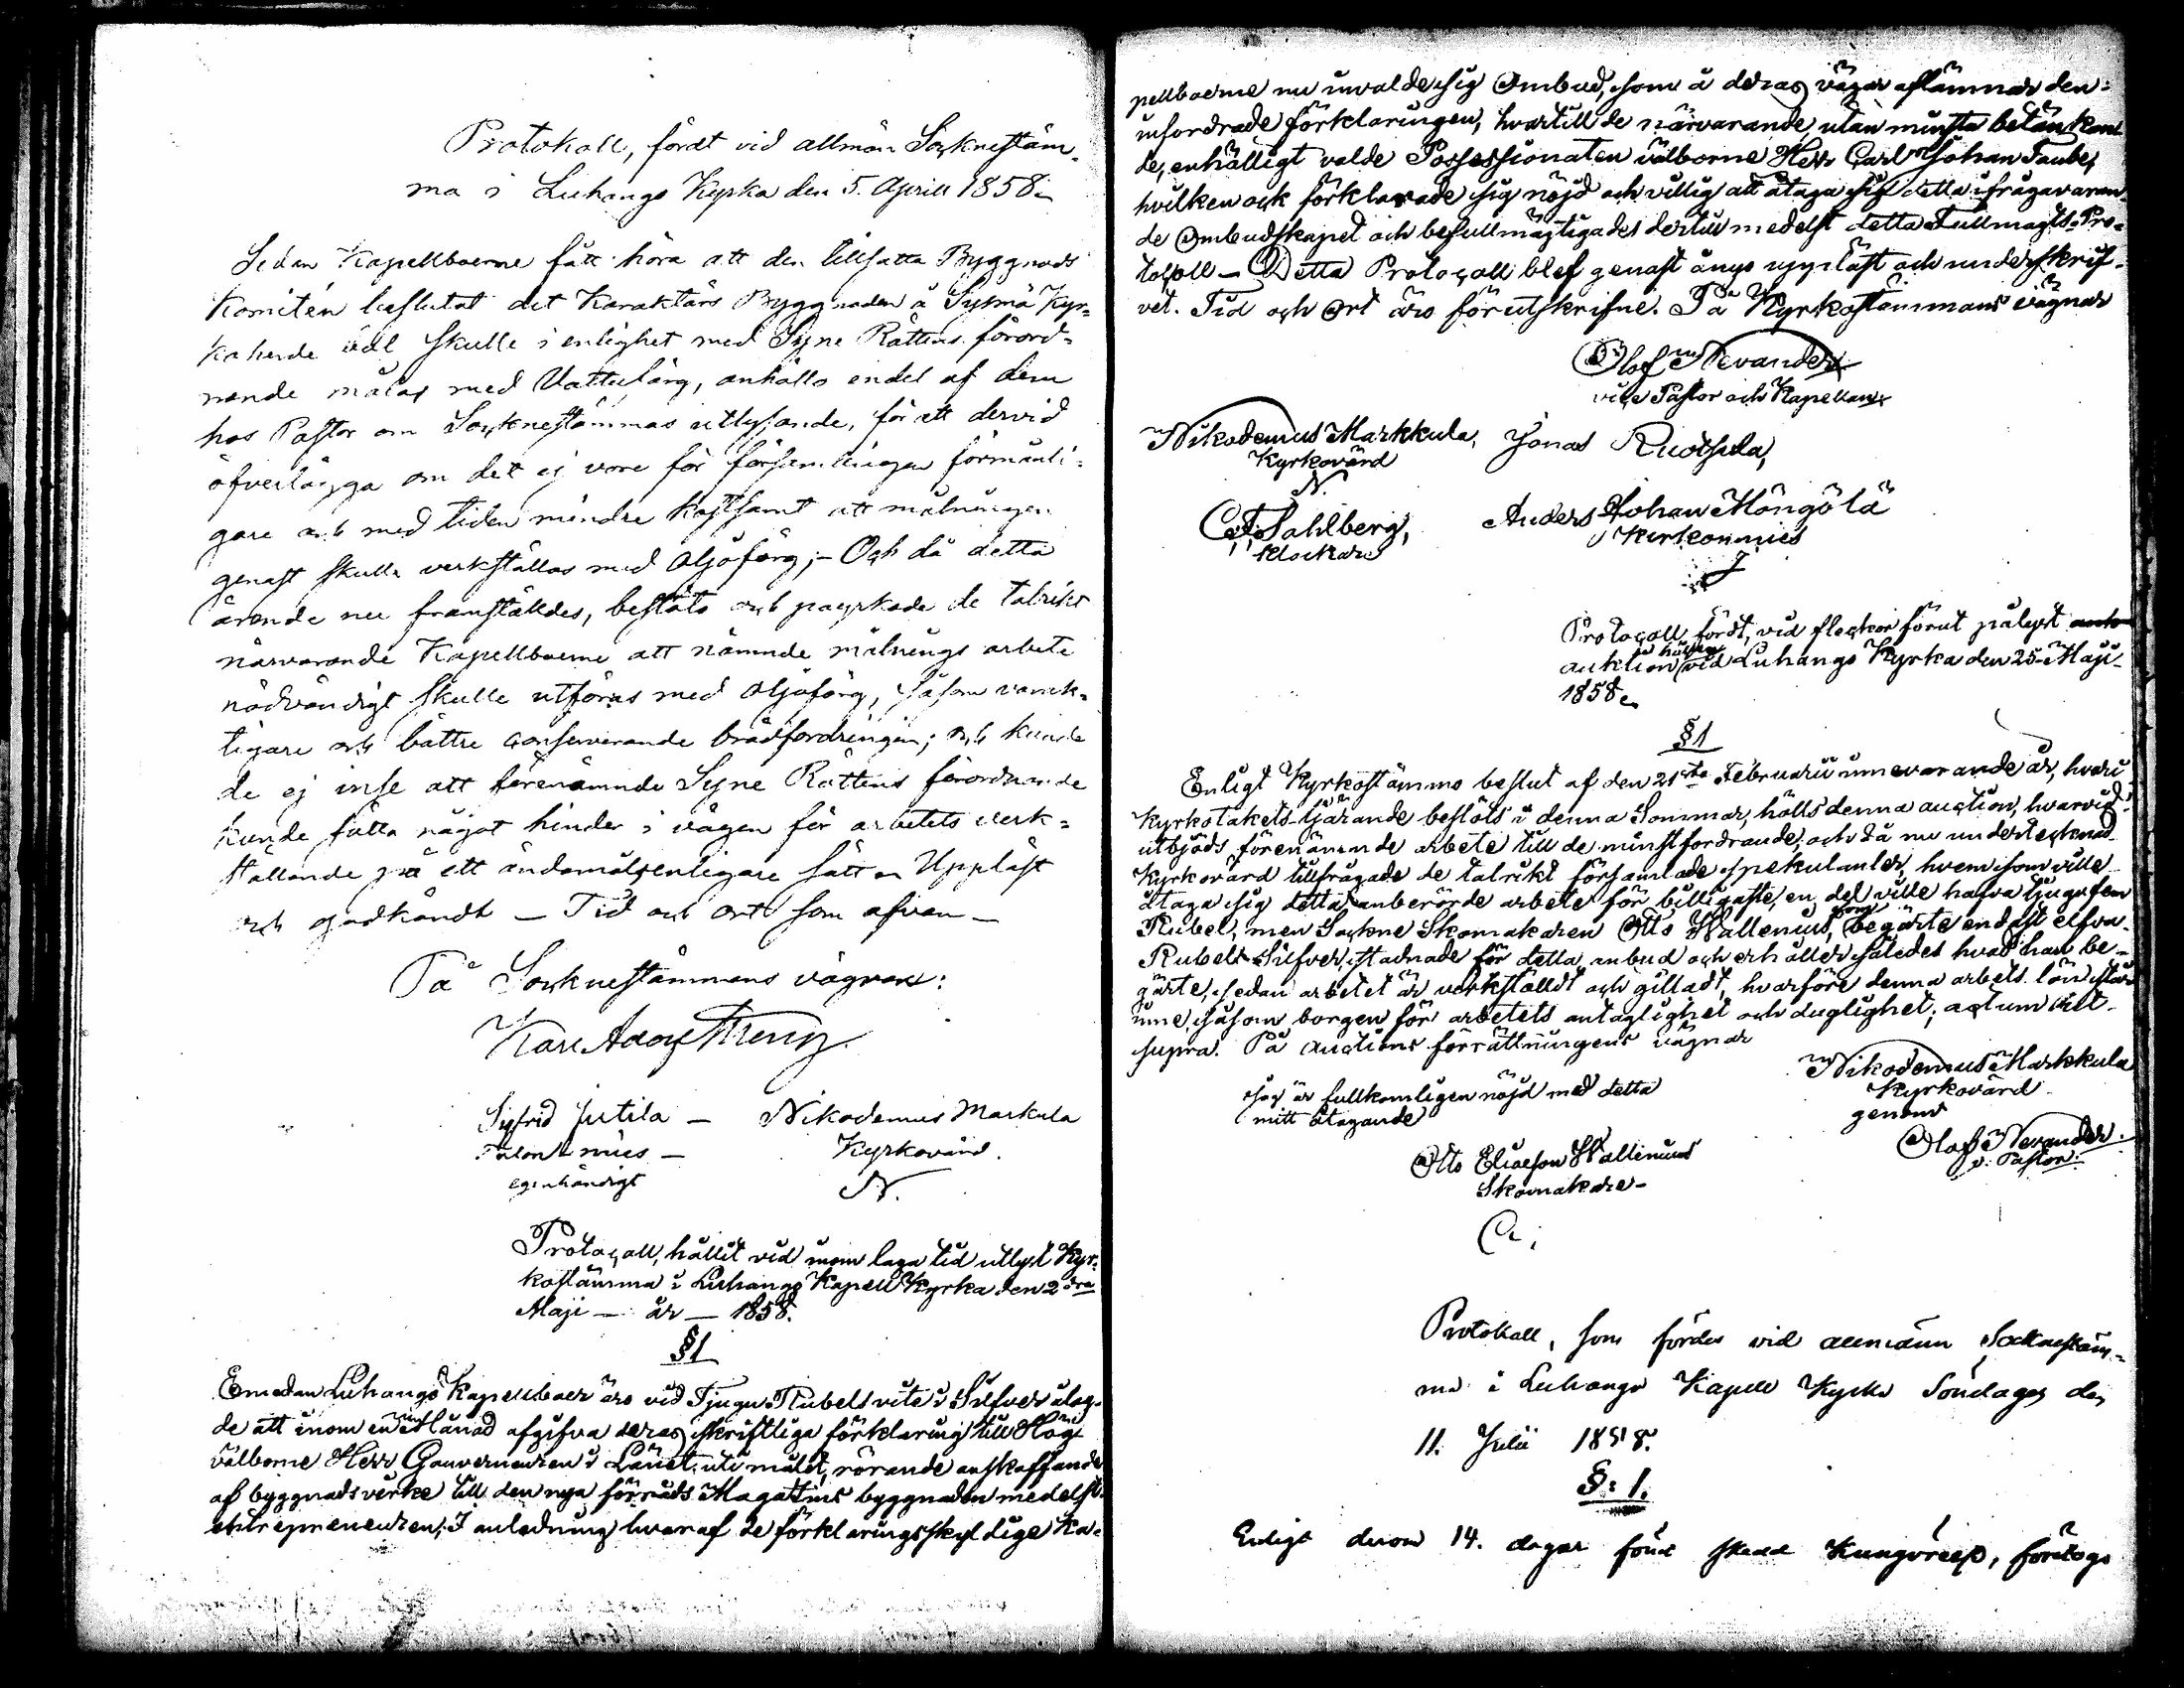 Protokoll, fördt vid allmän Socknestäm-
ma i Luhango Kyrka den 5. Aprill 1858.
Sedan Kapellboerne fått höra att den tillsatta Byggnads
Komitén beslutat det Karaktärs Byggnaden å Sysmä Kyr-
koherde böl skulle i enlighet med Syne Rättens förord-
nande målas med Vattufärg, anhöllo endel af dem
hos Pastor om Socknestämmas utlysande, för att dervid
öfverlägga om det ej vore för församlingen förmånli-
gare och med tiden mindre kostsamt att målningen
genast skulle verkställas med oljofärg; – Och då detta
ärende nu framställdes, beslöto och påyrkade de talrikt
närvarande Kapellboerne att nämnde målnings arbete
nödvändigt skulle utföras med oljofärg, såsom varak-
tigare och bättre conserverande brädfordringen; och kunde
de ej inse att förenämnde Syne Rättens förordnande
kunde sätta något hinder i vägen för arbetets verk-
ställande på ett ändamålsenligare sätt. Uppläst
och godkändt – Tid och ort som ofvan –
På Socknestämmans vägnar:
Karl Adolf Streng
Sigfrid Jutila – Nikodemus Markula
mies – Kyrkovärd.
egenhändigt N.
Protocoll, hållit vid inom laga tid utlyst Kyr-
kostämma i Luhango Kapell Kyrka den 2dra
Maji – år – 1858.
§1
Emedan Luhango Kapellboer äro vid Tjugu Rubels vite i Silfver ålag-
de att inom en Månad afgifva deras skriftliga förklaring till Hög
välborne Herr Gouverneuren i Länet, uti målet, rörande anskaffande
af byggnadsvirke till den nya förråds Magatins byggnaden medelst
entrepreneuren; I anledning hvaraf de förklaringsskyldige Ka-
pellboerne nu invalde sig Ombud, som å deras vägar aflämnar den
infordrade förklaringen, hvartill de närvarande utan minsta betänkan-
de, enhälligt valde Possessionaten välborne Herr Carl Johan Taube,
hvilken ock förklarade sig nöjd och villig att åtaga sig detta ifrågavaran-
de Ombudskapet och befullmägtigades dertill medelst detta Fullmagts-Pro-
tocoll – Detta Protocoll blef genast ånyo uppläst och underskrif-
vet. Tid och Ort äro förutskrifne. På Kyrkostämmans vägnar
Olof Nevander
vice Pastor och Kapellan
Nikodemus Markkula, Jonas Ruotsula,
Kyrkovärd
N.
C. F. Sahlberg, Anders Johan Möngölä
Klockare Kirkonmies
Protocoll fördt, vid flockor förut pålyst
auktion hållen vid Luhango Kyrka den 25 Maji
1858.
§1
Enligt Kyrkostämmo beslut af den 21sta Februarii innevarande år, hvari
Kyrkotakets tjärande beslöts i denna Sommar, hölls denna auction, hvarvid
utbjöds förenämnde arbete till de minstfordrande, och då nu undertecknad
Kyrkovärd tillfrågade de talrikt församlade spekulanter, hvem som ville
åtaga sig detta anberörde arbete för billigaste, en del ville hafva tjugufem
Rubel, men Sockne Skomakaren Otto Wallenius, som begärte endast elfva
Rubel Silfver, stadnade för detta anbud och erhåller således hvad han be-
gärte, sedan arbetet är verkställdt och gilladt, hvarföre denna arbets lön står
inne, såsom borgen för arbetets antaglighet och duglighet; actum ut
supra. På auctions förrättningens vägnar
Jag är fullkomligen nöjd med detta Nikodemus Markkula
mitt åtagande Kyrkovärd
genom
Otto Eliaeson Wallenius Olof Nevander
Skomakare – v. Pastor.
Protokoll, som fördes vid allmänn Socknestäm-
ma i Luhango Kapell Kyrka Söndagen den
11. Julii 1858.
§: 1.
Enligt derom 14. dagar förut skedd Kungörelse, företogs